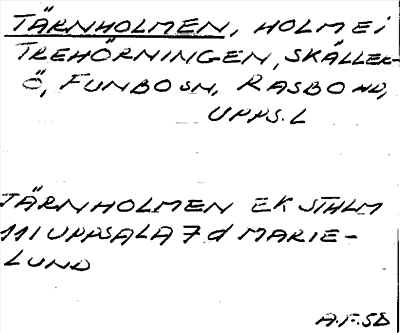 TÄRNHOLMEN, HOLME i
TREHÖRNINGEN, SKÄLLER-
Ö, FUNBO SN, RASBO HD,
UPPS. L
TÄRNHOLMEN EK STHLM
111 UPPSALA 7 d MARIE-
LUND
A.F. 58